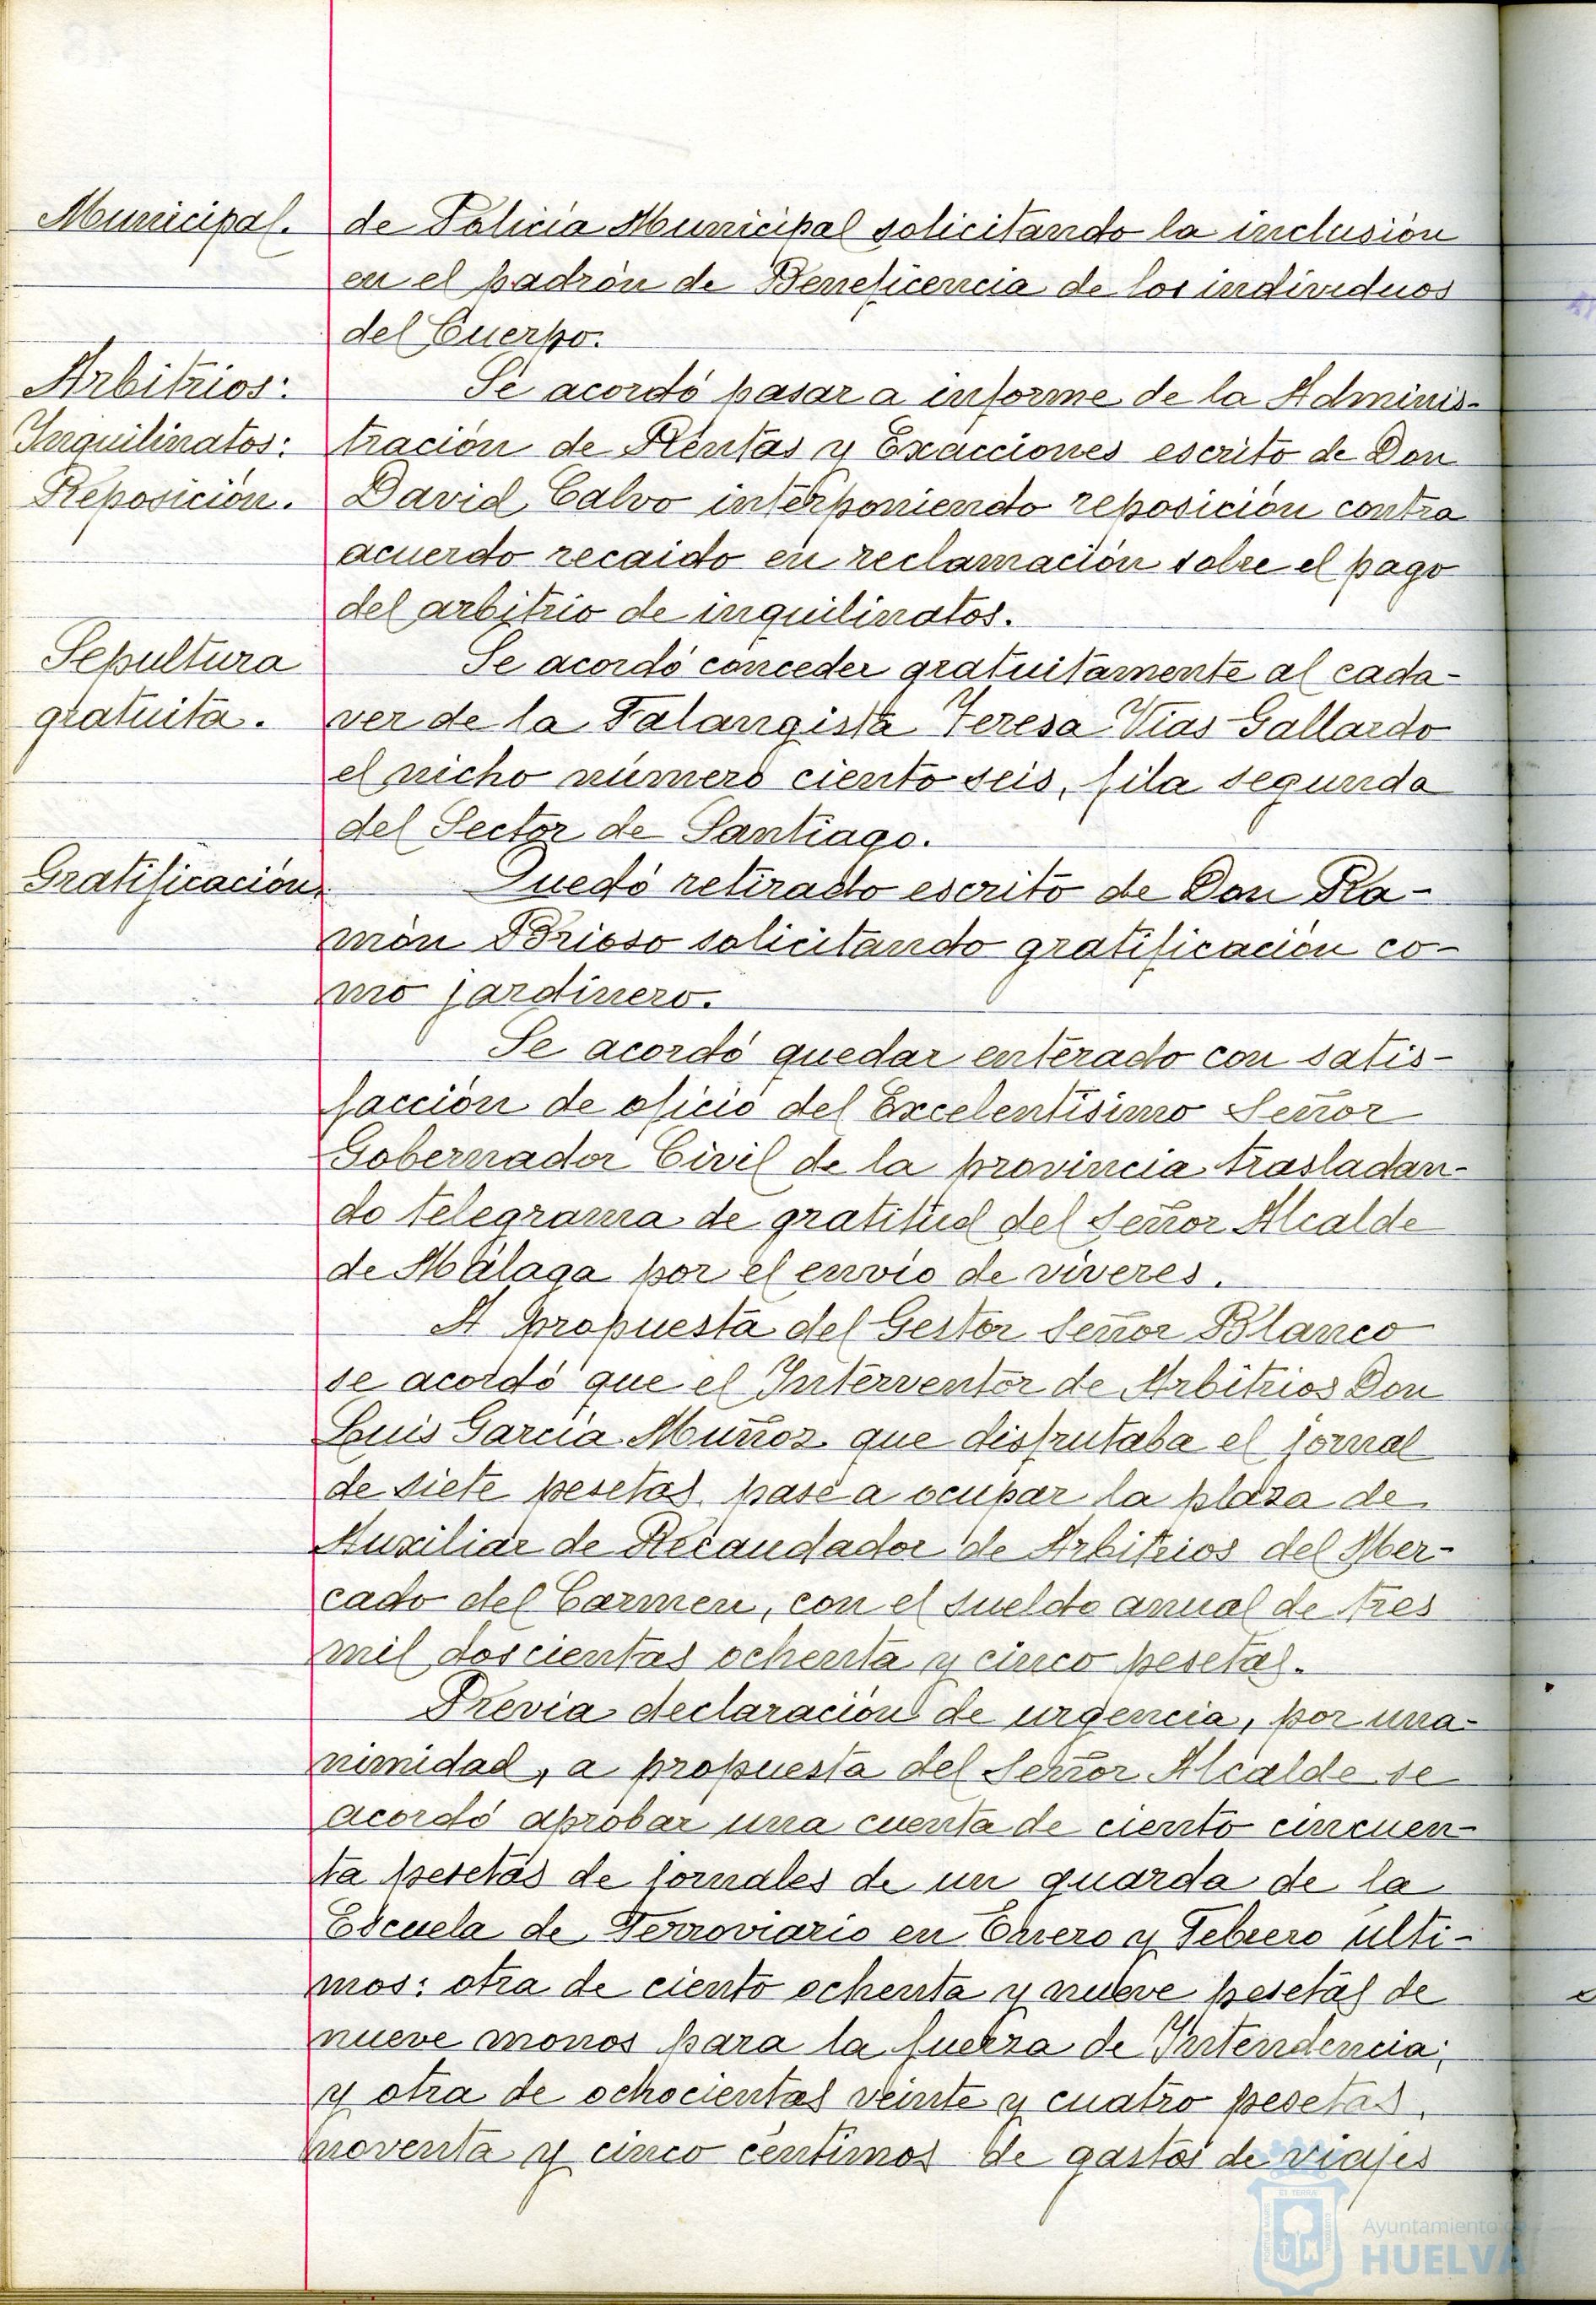 Municipal.
de Policía Municipal solicitando la inclusión
en el padrón de Beneficencia de los individuos
del Cuerpo.
Arbitrios:
Inquilinatos:
Reposición.
Se acordó pasar a informe de la Adminis-
tración de Rentas y Exacciones escrito de Don
David Calvo interponiendo reposición contra
acuerdo recaido en reclamación sobre el pago
del arbitrio de inquilinatos.
Sepultura
gratuita.
Se acordó conceder gratuitamente al cada-
ver de la Falangista Teresa Vias Gallardo
el nicho número ciento seis, fila segunda
del Sector de Santiago.
Gratificación.
Quedó retirado escrito de Don Ra-
món Brioso solicitando gratificación co-
mo jardinero.
Se acordó quedar enterado con satis-
facción de oficio del Excelentísimo Señor
Gobernador Civil de la provincia trasladan-
do telegrama de gratitud del Señor Alcalde
de Málaga por el envío de víveres.
A propuesta del Gestor Señor Blanco
se acordó que el Interventor de Arbitrios Don
Luis García Muñoz que disfrutaba el jornal
de siete pesetas, pase a ocupar la plaza de
Auxiliar de Recaudador de Arbitrios del Mer-
cado del Carmen, con el sueldo anual de tres
mil doscientas ochenta y cinco pesetas.
Previa declaración de urgencia, por una-
nimidad, a propuesta del Señor Alcalde se
acordó aprobar una cuenta de ciento cincuen-
ta pesetas de jornales de un guarda de la
Escuela de Ferroviario en Enero y Febrero últi-
mos: otra de ciento ochenta y nueve pesetas de
nueve monos para la fuerza de Intendencia;
y otra de ochocientas veinte y cuatro pesetas,
noventa y cinco céntimos de gastos de viajes
Ayuntamiento de
HUELVA